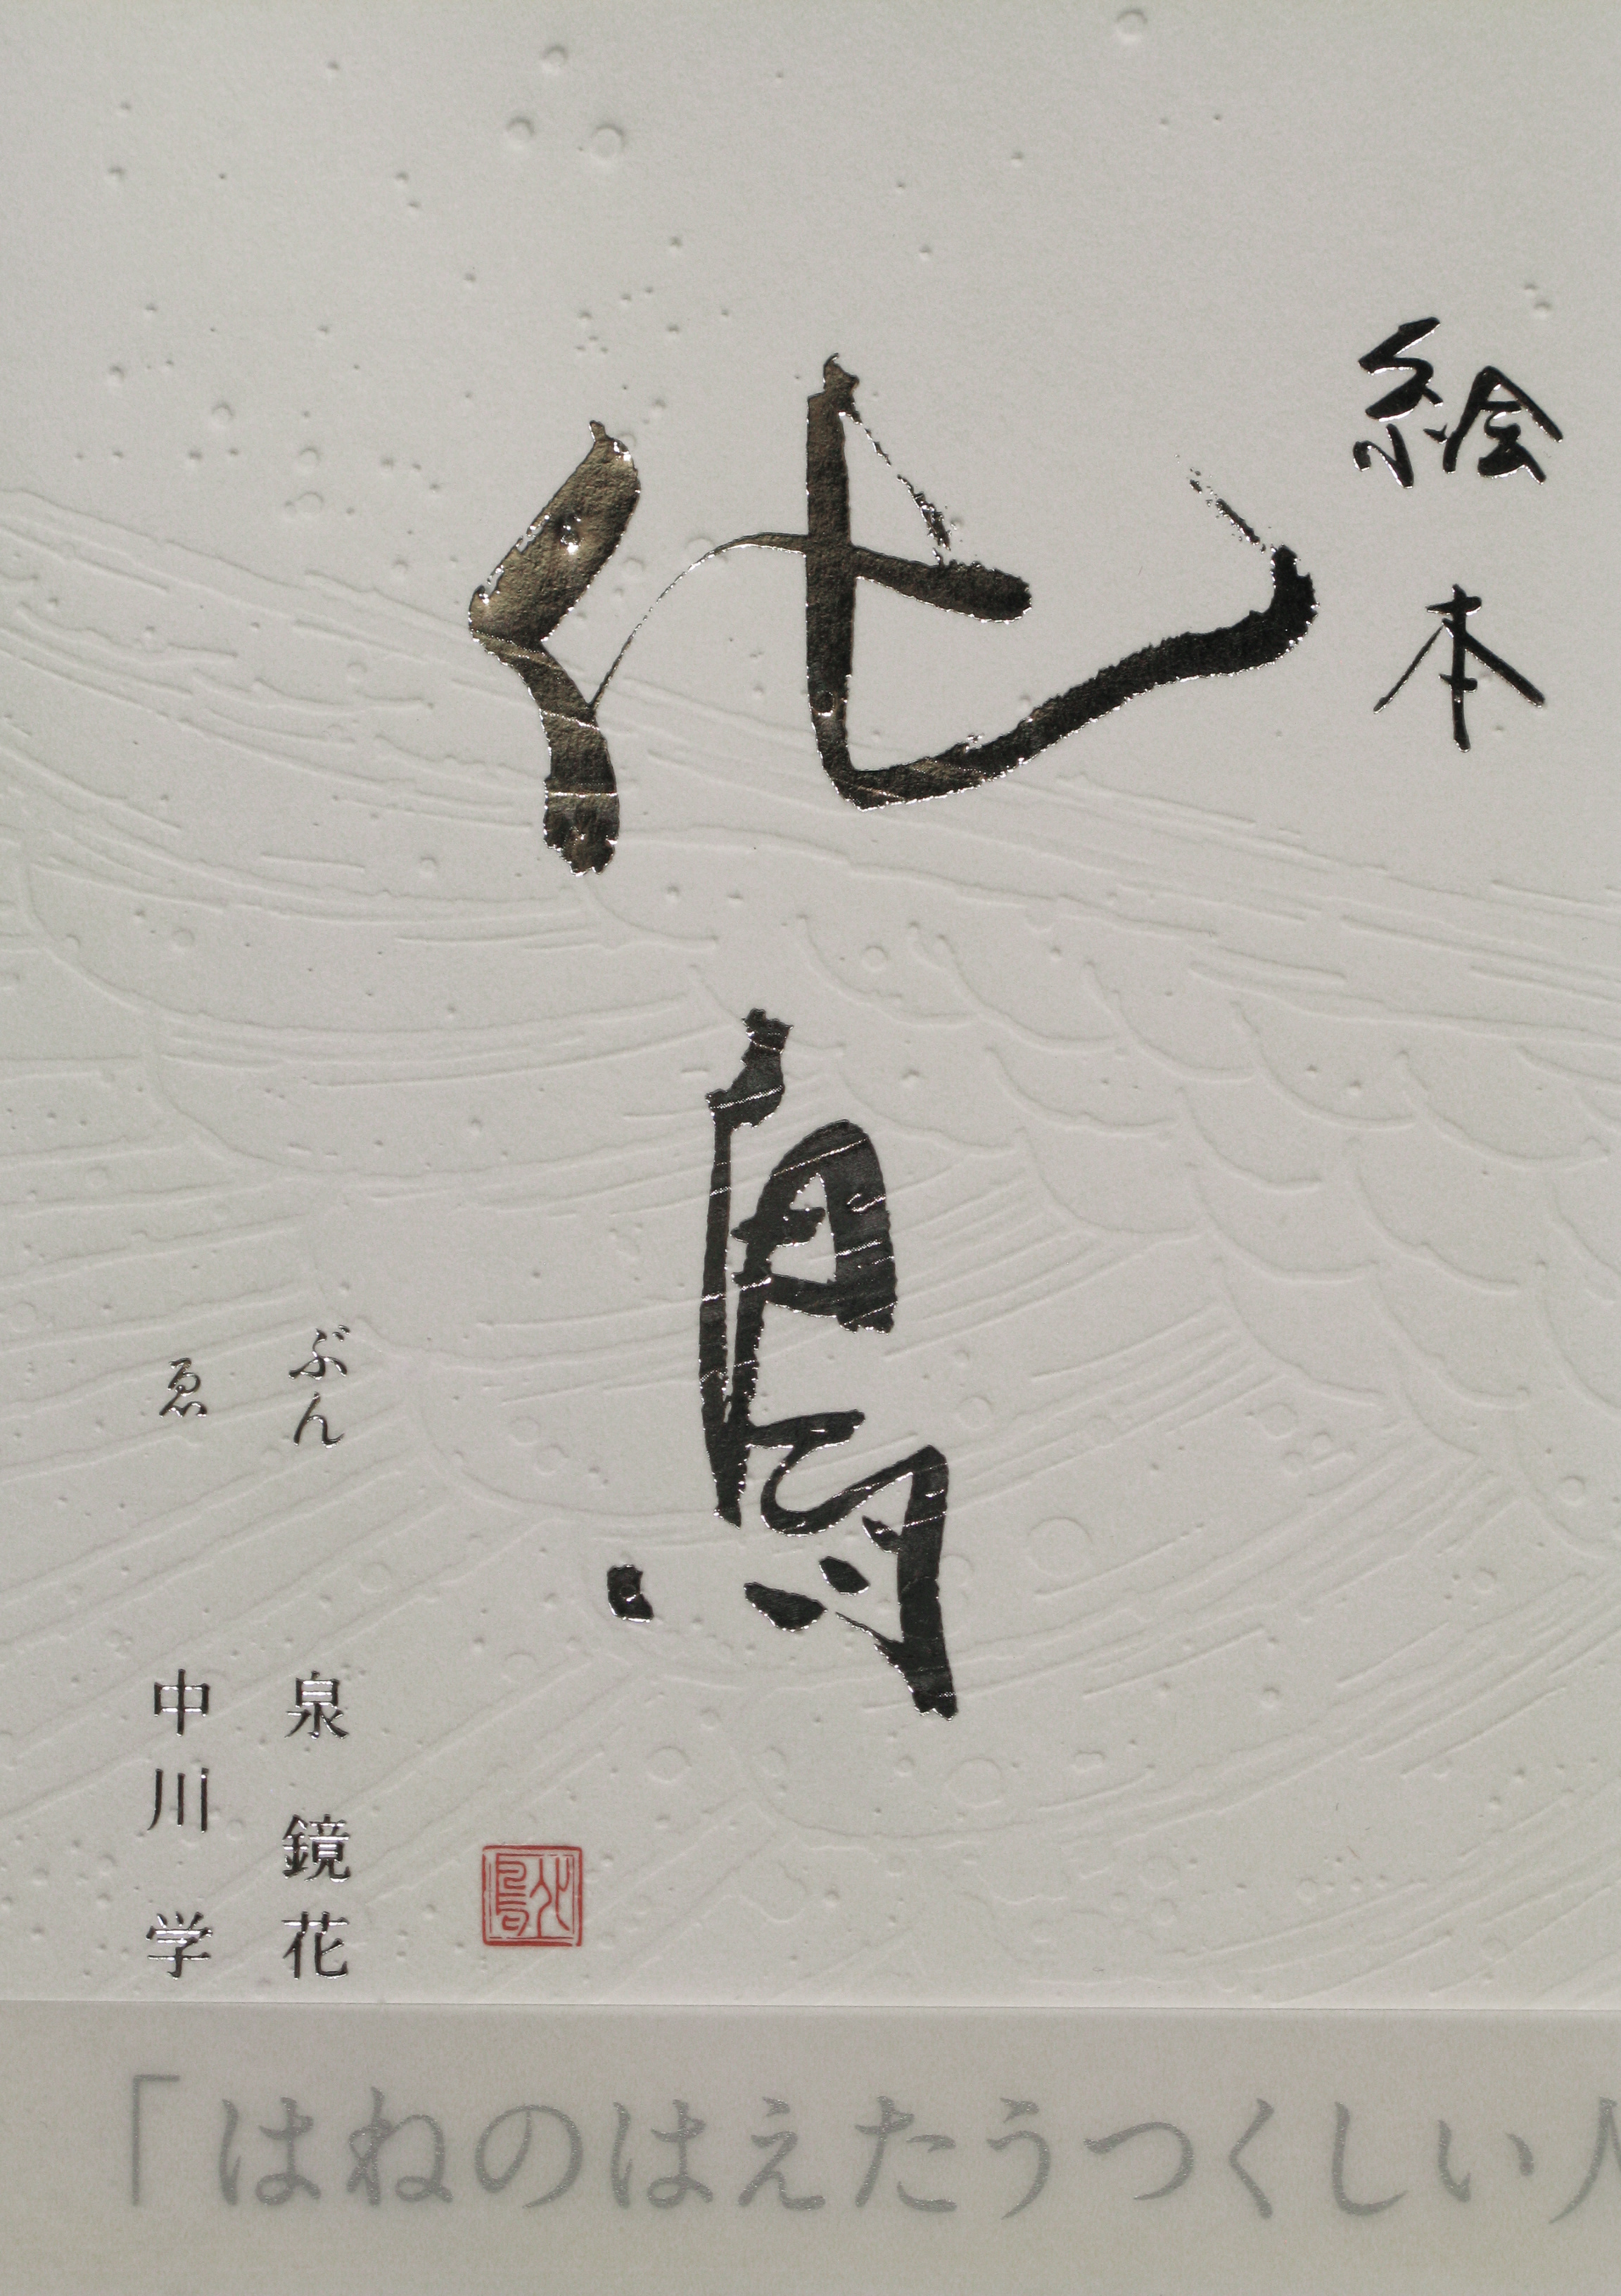 絵本
化鳥
ぶん 泉 鏡花
ゑ 中川 学
化鳥
「はねのはえたうつくしい